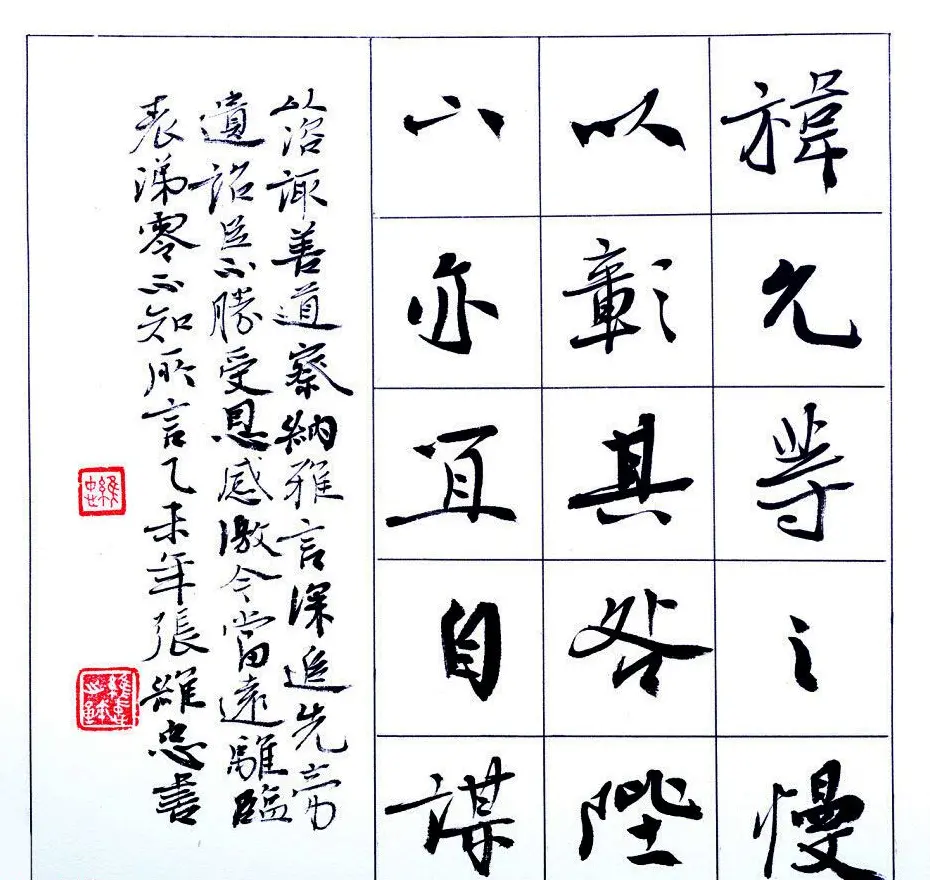 禕允等之慢
以彰其咎陛
下亦宜自謀
以咨諏善道察納雅言深追先帝
遺詔臣不勝受恩感激今當遠離臨
表涕零不知所言乙未年張維忠書